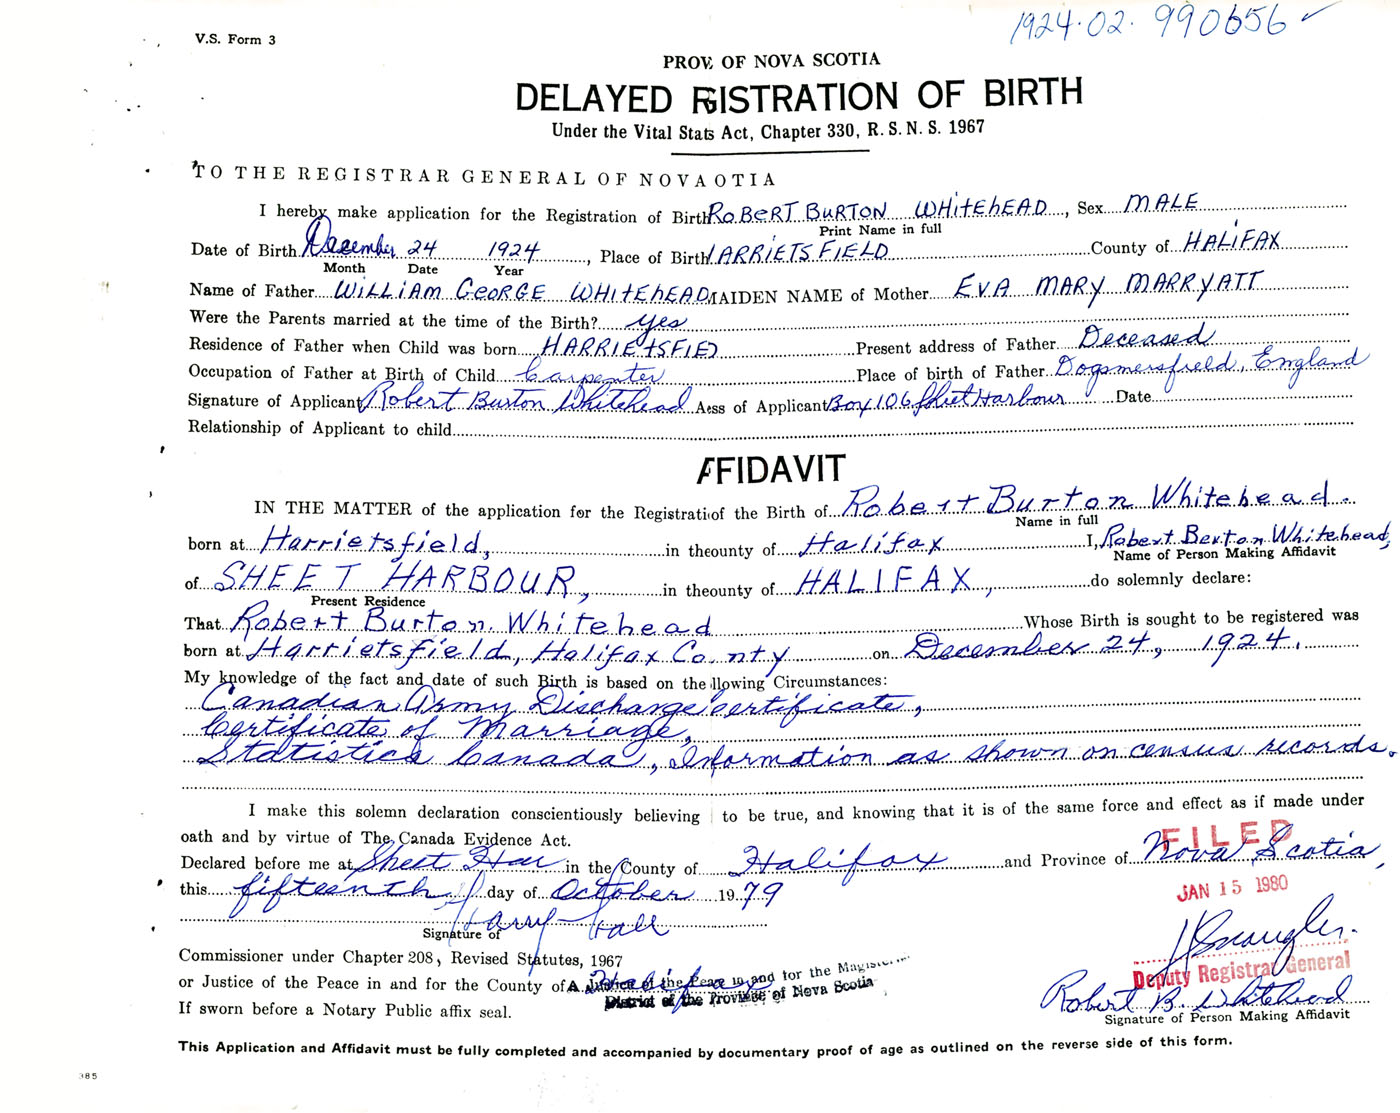 V.S. Form 3
1924.02. 990656 ✓
PROV. OF NOVA SCOTIA
DELAYED RGISTRATION OF BIRTH
Under the Vital Stats Act, Chapter 330, R. S. N. S. 1967
TO THE REGISTRAR GENERAL OF NOVA OTIA
I hereby make application for the Registration of Birth ROBERT BURTON WHITEHEAD, Sex MALE
Print Name in full
Date of Birth December 24 1924, Place of Birth HARRIETSFIELD County of HALIFAX
Month Date Year
Name of Father WILLIAM GEORGE WHITEHEAD MAIDEN NAME of Mother EVA MARY MARRYATT
Were the Parents married at the time of the Birth? yes
Residence of Father when Child was born HARRIETSFIED Present address of Father Deceased
Occupation of Father at Birth of Child Carpenter Place of birth of Father Dogmersfield, England
Signature of Applicant Robert Burton Whitehead Aess of Applicant Box 106 Sheet Harbour Date
Relationship of Applicant to child
AFFIDAVIT
IN THE MATTER of the application for the Registrati of the Birth of Robert Burton Whitehead.
Name in full
born at Harrietsfield, in the ounty of Halifax I, Robert Berton Whitehead,
Name of Person Making Affidavit
of SHEET HARBOUR, in the ounty of HALIFAX, do solemnly declare:
Present Residence
That Robert Burton Whitehead Whose Birth is sought to be registered was
born at Harrietsfield, Halifax Co nty on December 24, 1924.
My knowledge of the fact and date of such Birth is based on the llowing Circumstances:
Canadian Army Discharge certificate,
Certificate of Marriage,
Statistics Canada, Information as shown on census records.
I make this solemn declaration conscientiously believing to be true, and knowing that it is of the same force and effect as if made under
oath and by virtue of The Canada Evidence Act.
FILED
Declared before me at Sheet Har in the County of Halifax and Province of Nova Scotia,
this fifteenth day of October 1979
JAN 15 1980
Harry Hall
Signature of
Commissioner under Chapter 208, Revised Statutes, 1967
or Justice of the Peace in and for the County of A Justice of the Peace in and for the Magisterial
District of the Province of Nova Scotia
Deputy Registrar General
Robert B. Whitehead
Signature of Person Making Affidavit
If sworn before a Notary Public affix seal.
This Application and Affidavit must be fully completed and accompanied by documentary proof of age as outlined on the reverse side of this form.
385